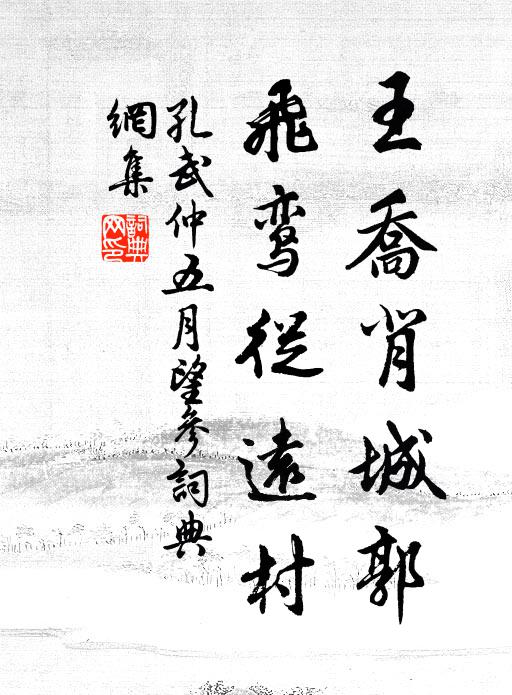 王喬肖城郭
飛鸾從遠村
孔武仲五月望參詞典
網集
詞典
网印